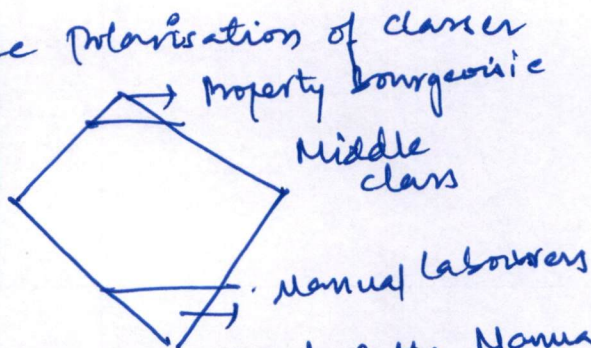 e Polarisation of classes
Property bourgeoisie
Middle
class
Manual Labourers
Manua